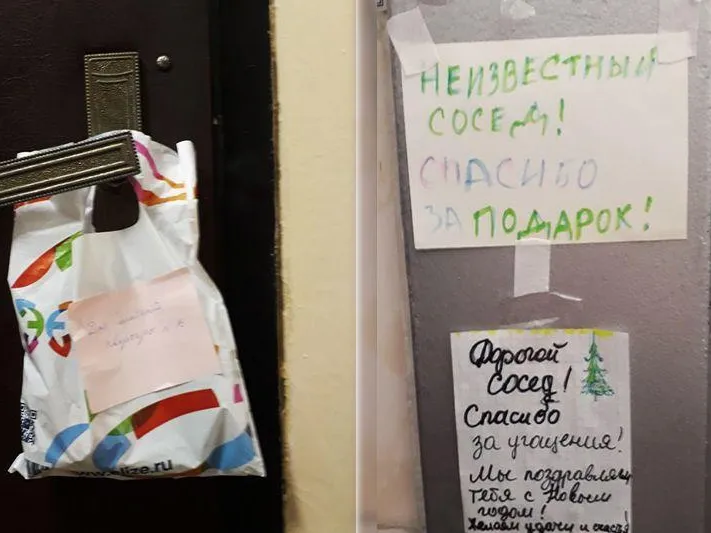 www.elize.ru
НЕИЗВЕСТНЫЙ
СОСЕД!
СПАСИБО
ЗА ПОДАРОК!
Дорогой
сосед!
Спасибо
за угощения!
Мы поздравляем
тебя с Новым
годом!
Желаем удачи и счастья